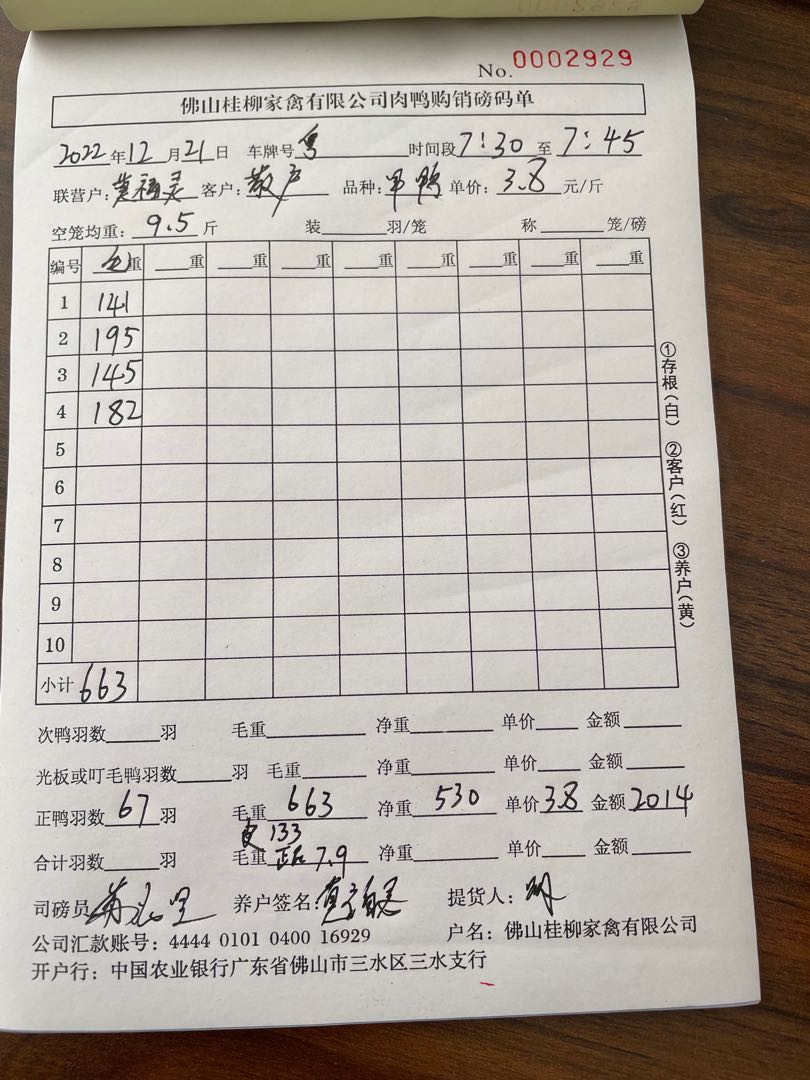 No. 0002929
佛山桂柳家禽有限公司肉鸭购销磅码单
2022年12月21日 车牌号粤 时间段7:30至7:45
联营户: 客户:散户 品种: 单价:3.8元/斤
空笼均重:9.5斤 装 羽/笼 称 笼/磅
编号 毛重 重 重 重 重 重 重 重 重
1 141
2 195
3 145
4 182
5
6
7
8
9
10
小计 663
①存根(白) ②客户(红) ③养户(黄)
次鸭羽数 羽 毛重 净重 单价 金额
光板或叮毛鸭羽数 羽 毛重 净重 单价 金额
正鸭羽数67羽 毛重663 净重530 单价3.8 金额2014
皮133
合计羽数 羽 毛重 7.9 净重 单价 金额
司磅员 养户签名: 提货人:
公司汇款账号: 4444 0101 0400 16929 户名: 佛山桂柳家禽有限公司
开户行: 中国农业银行广东省佛山市三水区三水支行